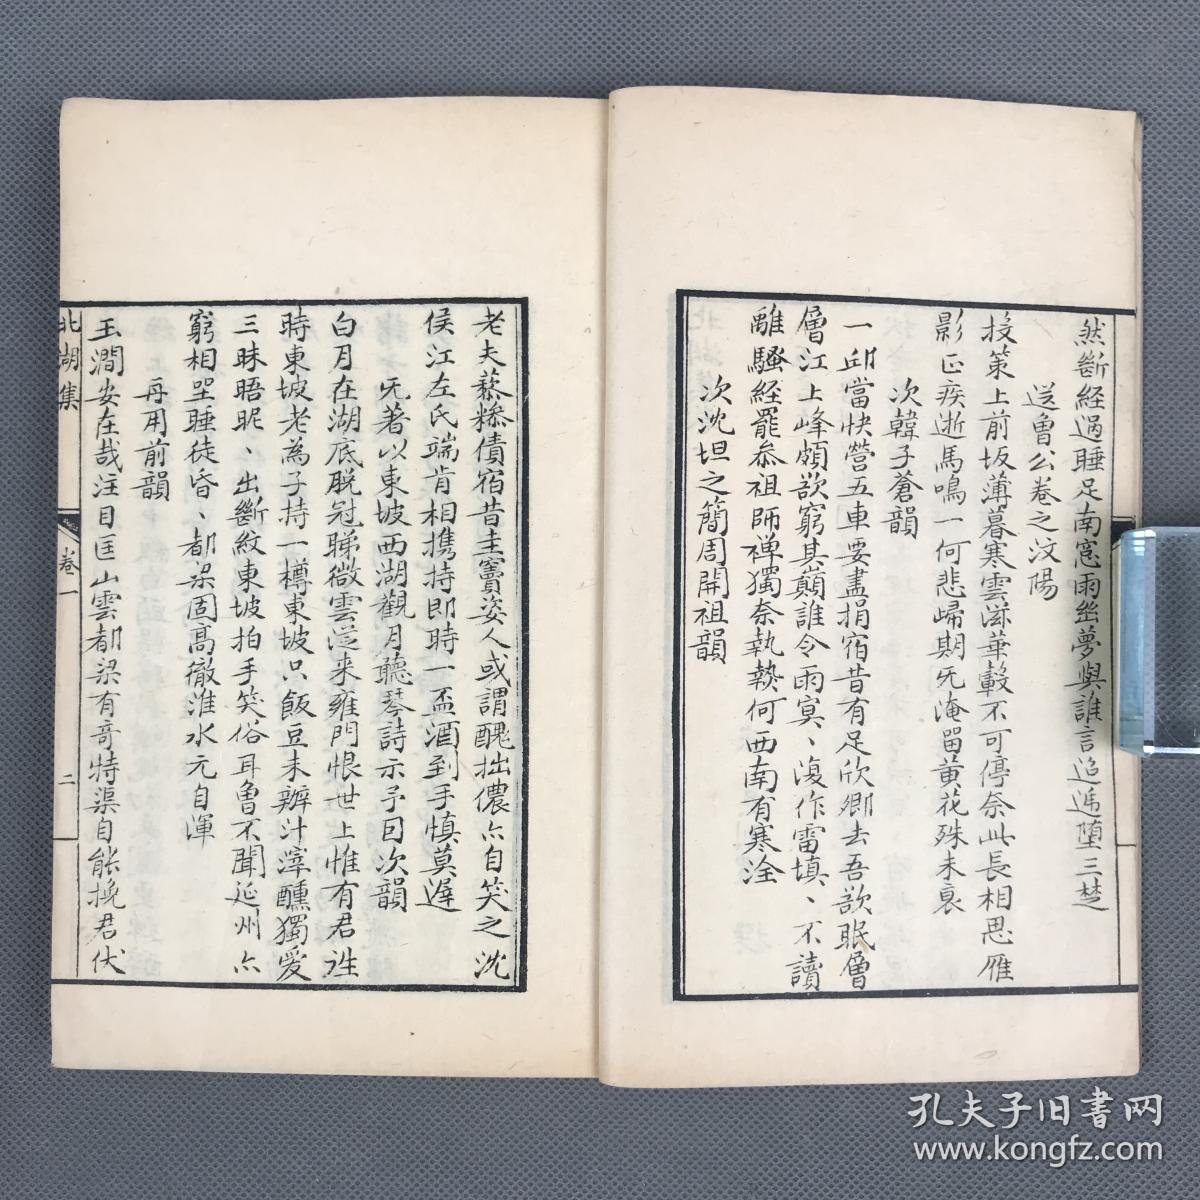 然斷經過睡足南窓雨幽夢與誰言迢遞墮三楚
送魯公卷之汶陽
投策上前坂薄暮寒雲滋華轂不可停奈此長相思雁
影正疾逝馬鳴一何悲歸期旡淹畱黄花殊未衰
次韓子蒼韻
一邱當快營五車要盡捐宿昔有足欣卿去吾欲眠層
層江上峰頗欲窮其巔誰令雨寞、復作雷填、不讀
離騷經罷叅祖師禅獨奈執熱何西南有寒泠
次沈坦之簡周開祖韻
老夫藜糝債宿昔圭竇姿人或謂醜拙儂亦自笑之沈
侯江左氏端肯相携持即時一盃酒到手慎莫遲
旡著以東坡西湖觀月聽琴詩示予囙次韻
白月在湖底脱冠睇微雲泛来雍門恨世上惟有君誰
時東坡老為子持一樽東坡只飯豆未辦汁滓醺獨愛
三昧晤昵、出斷紋東坡拍手笑俗耳魯不聞延州亦
窮相㘴睡徒昏、都梁固高徹淮水元自渾
再用前韻
玉澗安在哉注目匡山雲都梁有竒特渠自能挽君伏
北湖集
卷一
二
孔夫子旧书网
www.kongfz.com